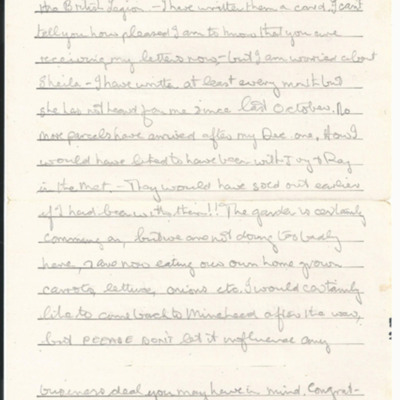 the British Legion - I have written them a card. I can't
tell you how pleased I am to know that you are
receiving my letters now - but I am worried about
Sheila - I have written at least every month but
she has not heard from me since last October. No
more parcels have arrived after my Dec. one. How I
would have liked to have been with Ivy & Ray
in the Met. - They would have sold out earlier
if I had been with them!! The garden is certainly
comming on, but we are not doing too badly
here, I are now eating our own home grown
carrots, lettuce, onions etc. I would certainly
like to come back to Minehead after the war,
but PLEASE DON'T let it influence any
business deal you may have in mind. Congrat-